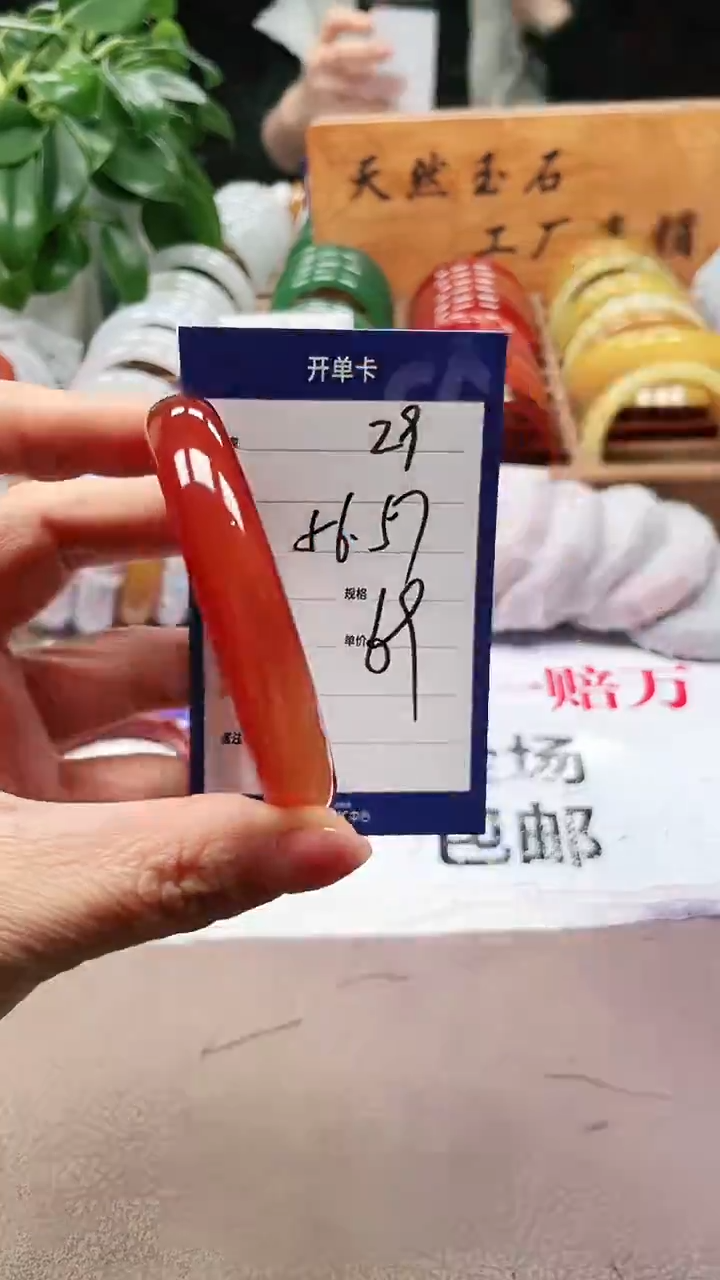 天然玉石
工厂直销
开单卡
29
56.57
规格
单价 69
备注
一赔万
全场
包邮